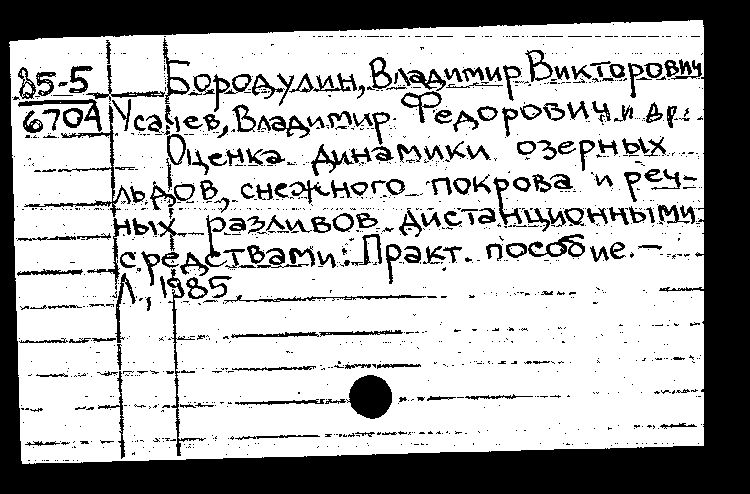 85-5
6704
Бородулин, Владимир Викторович
Усачев, Владимир Федорович и др.:
Оценка динамики озерных
льдов, снежного покрова и реч-
ных разливов дистанционными
средствами: Практ. пособие. –
Л., 1985.